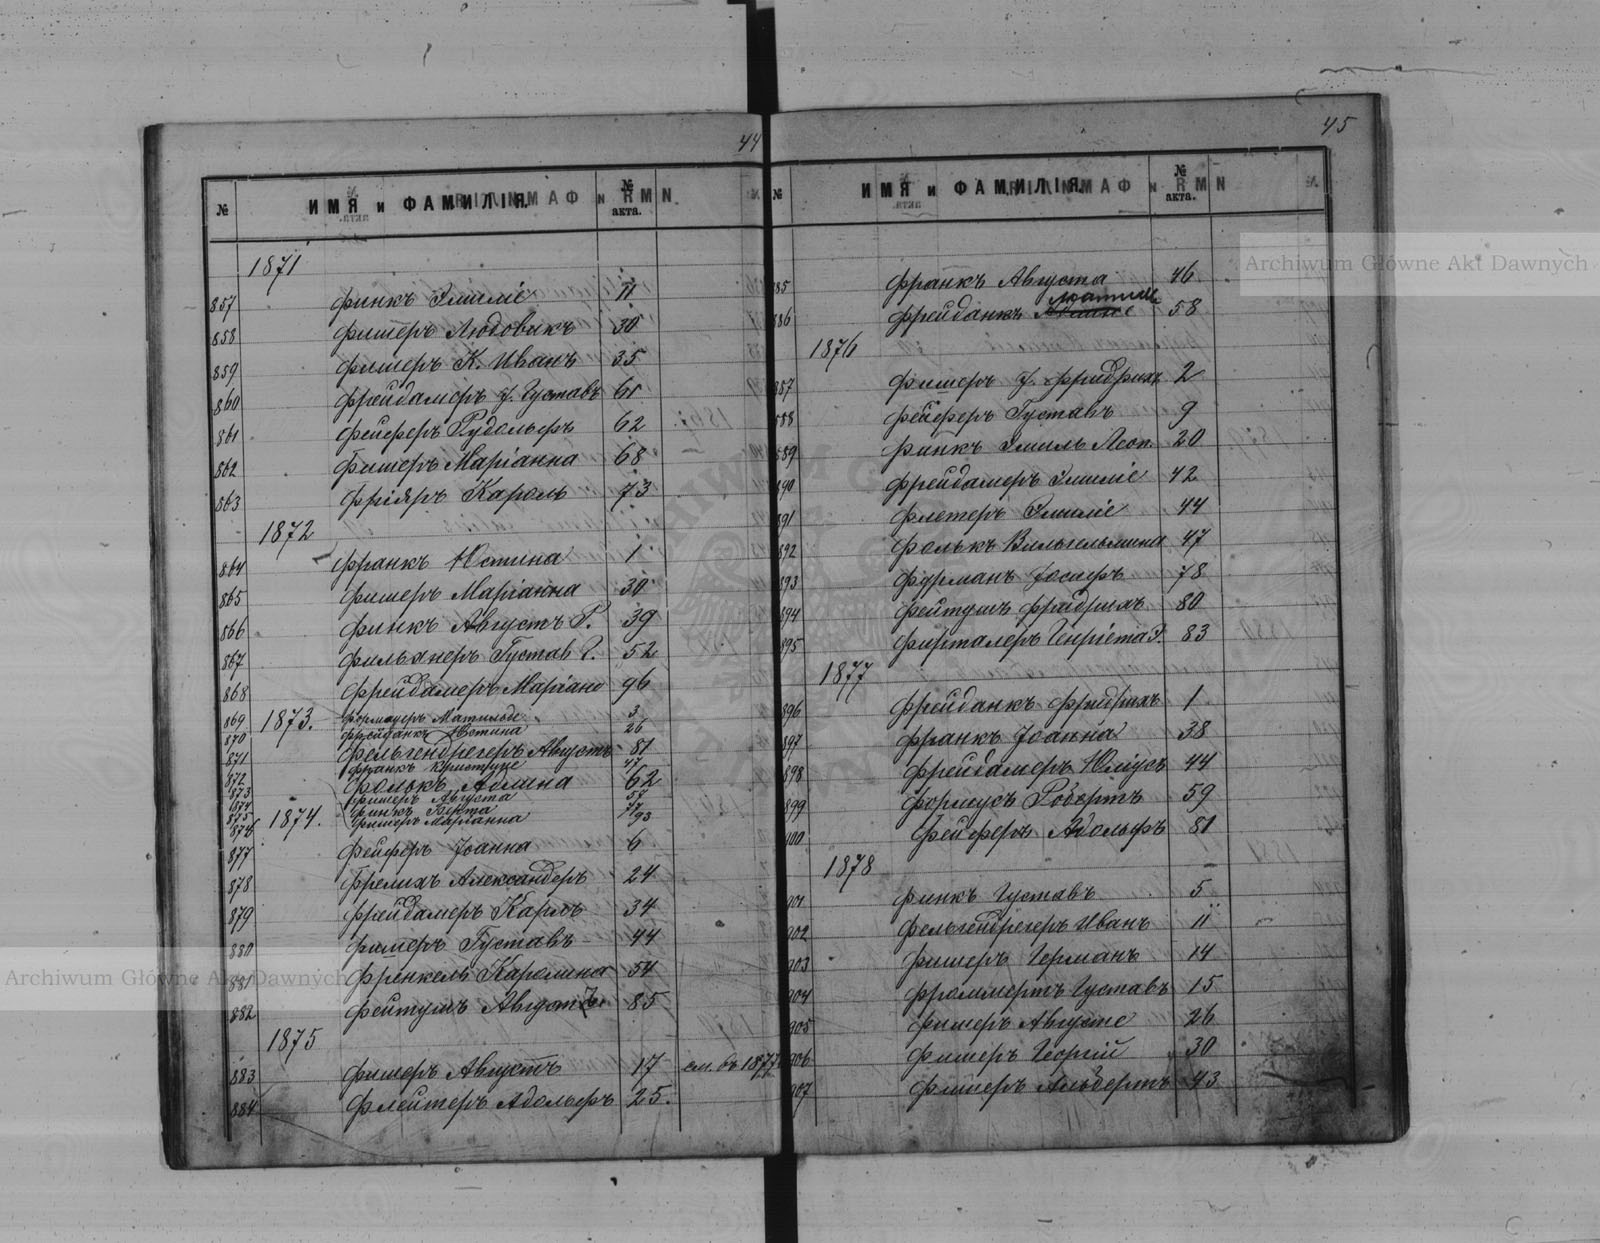 44
№ ИМЯ и ФАМИЛІЯ. № акта.
1871
857 Финкъ Эмиліе 11
858 Фишеръ Людовикъ 30
859 Фишеръ К. Иванъ 35
860 Фрейдамеръ Ј. Густавъ 61
861 Фейферъ Рудольфъ 62
862 Фишеръ Маріанна 68
863 Фріяръ Кароль 73
1872
864 Франкъ Юстина 1
865 Фишеръ Маріанна 30
866 Финкъ Августъ Р. 39
867 Фильхнеръ Густав Г. 52
868 Фрейдамеръ Маріано 96
869 1873. Матильде 3
870 Фрейданкъ Юстина 26
871 Фельгендрегеръ Августъ 81
872 Франкъ 47
873 Фолькъ Адлина 62
874 Фишеръ Августа 57
875 Финкъ Берта 77
876 1874. Фишеръ Маріанна 93
877 Фейферъ Јоанна 6
878 Фрелихъ Александеръ 24
879 Фрейдамеръ Карлъ 34
880 Фишеръ Густавъ 44
881 Френкель Каролина 54
882 Фейтушъ Августъ 85
1875
883 Фишеръ Августъ 17 см. въ 1877
884 Флейтеръ Адольфъ 25.
45
№ ИМЯ и ФАМИЛІЯ. № акта.
885 Франкъ Августа 46
886 Фрейданкъ 58
1876
887 Фишеръ Ј. Фридрихъ 2
888 Фейферъ Густавъ 9
889 Финкъ Эмиль Леоп. 20
890 Фрейдамеръ Эмиліе 42
891 Флетеръ Эмиліе 44
892 Фолькъ Вильгельмина 47
893 Фурманъ Јосифъ 78
894 Фейтушъ Фридрихъ 80
895 Фирталеръ Генріета Э. 83
1877
896 Фрейданкъ Фридрихъ 1
897 Франкъ Јоанна 38
898 Фрейдамеръ Юліусъ 44
899 Формусъ Робертъ 59
900 Фейферъ Адольфъ 81
1878
901 Финкъ Густавъ 5
902 Фельгендрегеръ Иванъ 11
903 Фишеръ Германъ 14
904 Фроммертъ Густавъ 15
905 Фишеръ Августе 26
906 Фишеръ Георгій 30
907 Фишеръ Альбертъ 43
Archiwum Główne Akt Dawnych
Archiwum Główne Akt Dawnych